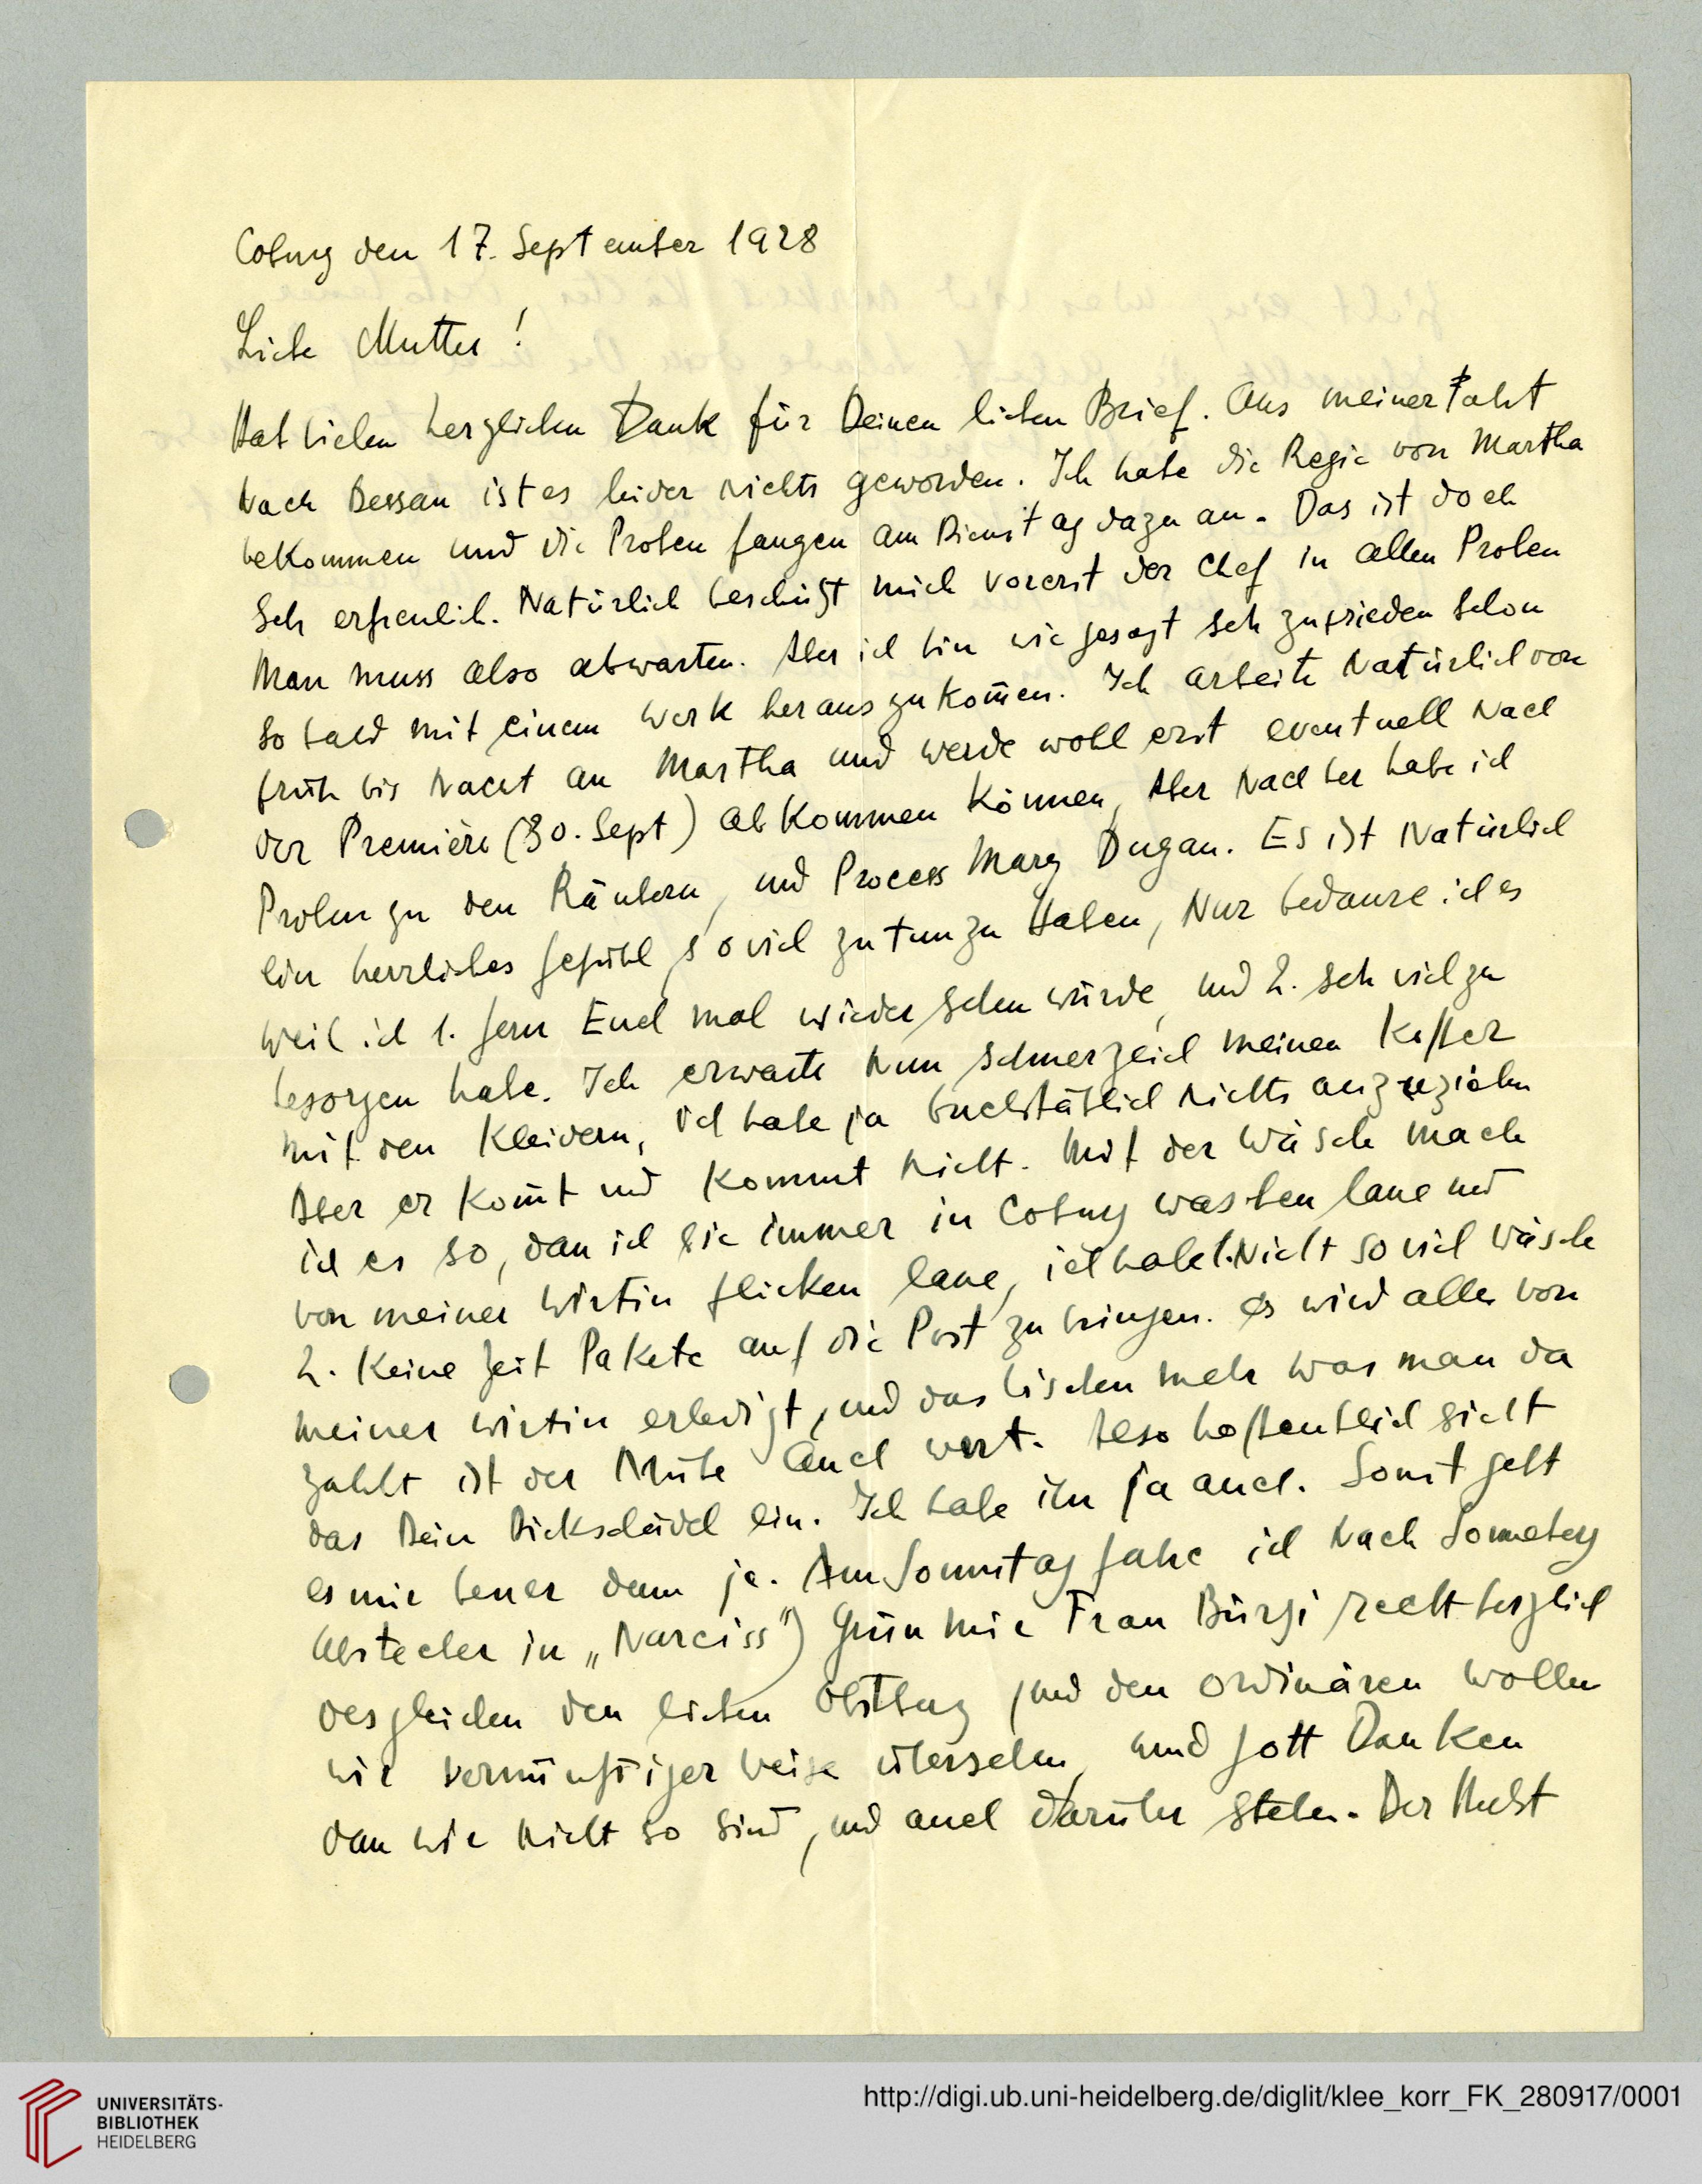 Coburg den 17. September 1928
Liebe Mutter!
Hab vielen herzlichen Dank für Deinen lieben Brief. Aus meiner Fahrt
nach Dessau ist es leider nichts geworden. Ich habe die Regie von Martha
bekommen und die Proben fangen am Dienstag dazu an. Das ist doch
sehr erfreulich. Natürlich beschützt mich vorerst der Chef in allen Proben
Man muss also abwarten. Aber ich bin wie gesagt sehr zufrieden schon
so bald mit einem Werk herauszukom̅en. Ich arbeite natürlich von
früh bis Nacht an Martha und werde wohl erst eventuell nach
der Premièrè (30. Sept) abkommen können, Aber nachher habe ich
Proben zu den Räubern, und Process Mary Dugan. Es ist natürlich
ein herrliches Gefühl soviel zu tun zu haben, Nur bedaure ich es
weil ich 1. gern Euch mal wieder sehen würde, und 2. sehr viel zu
besorgen habe. Ich erwarte nun schmerzlich meinen Koffer
mit den Kleidern, ich habe ja buchstäblich nichts anzuziehn
Aber er kom̅t und kommt nicht. Mit der Wäsche mach
ich es so, dass ich sie immer in Coburg waschen lasse und
von meiner Wirtin flicken lasse, ich habe 1. nicht so viel Wäsche
2. Keine Zeit Pakete auf die Post zu bringen. es wird alles von
meiner Wirtin erledigt, und das bischen mehr was man da
zahlt ist der Mühe auch wert. Also hoffentlich sieht
das Dein Dickschädel ein. Ich habe ihn ja auch. Sonst geht
es mir besser denn je. Am Sonntag fahre ich nach Sonneberg
Abstecher in „Narciss") Grüss mir Frau Bürgi recht herzlich
desgleichen den lieben Ostberg, und den ordinären wollen
wir vernünftiger Weise übersehen, und Gott Danken
dass wir nicht so sind, und auch darüber stehen. Der Herbst
UNIVERSITÄTS-
BIBLIOTHEK
HEIDELBERG
http://digi.ub.uni-heidelberg.de/diglit/klee_korr_FK_280917/0001